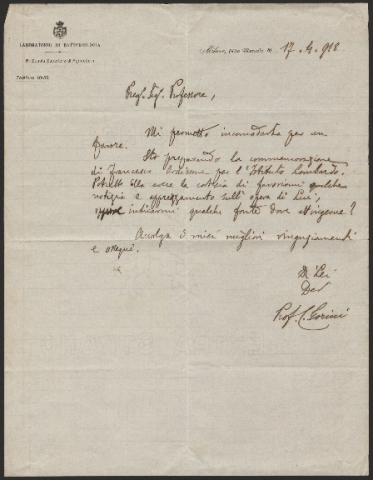 LABORATORIO DI BATTERIOLOGIA
R. Scuola Superiore di Agricoltura
Milano, 17. 4. 918
Preg. Sig. Professore,
Mi permetto incomodarla per un
favore.
Sto preparando la commemorazione
di Francesco per l'Istituto Lombardo.
Potrebbe Ella avere la cortesia di favorirmi qualche
notizia e apprezzamento sull'opera di Lui,
indicarmi qualche fonte dove attingerne?
Accolga i miei migliori ringraziamenti
e ossequi.
Di Lei
Dev
Prof. C. Gorini